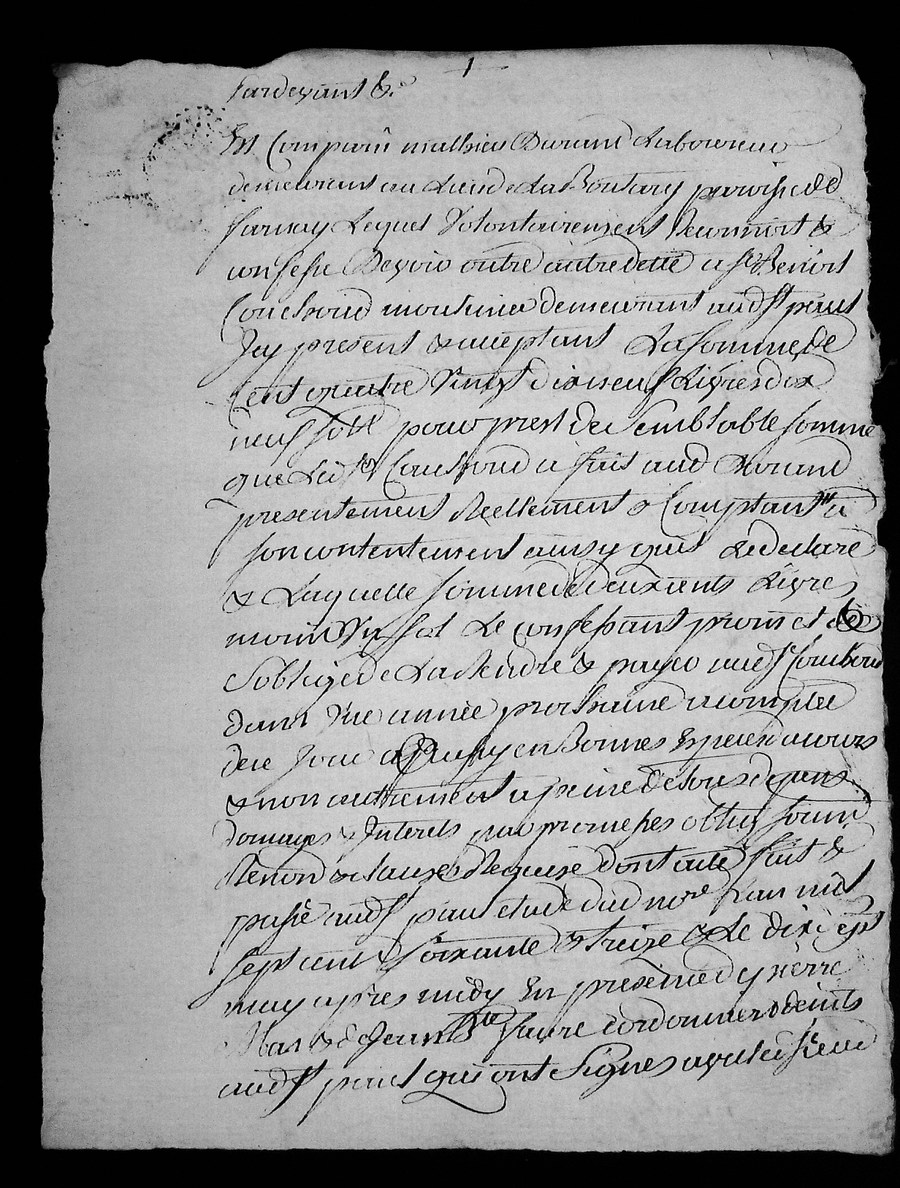 1
Pardevant &.ª
Est Comparu mathieu Durand Laboureur
demeurant au Lieu de La parroisse de
Jarnay Lequel Volontairement reconnoit &
confesse Devoir outre autre dette a Sr Benoit
mounier demeurant aud St paul
Icy present & acceptant La Somme de
Cent quatre Vingt dixneuf Livres dix
neuf sols pour prest de Semblable somme
que Led Sr a fait aud Durand
presentement Reellement & Comptant a
son contentement ainsy quil Le declare
& Laquelle somme de deux cents Livres
moins Un sol Le confessant promet &
Soblige de La Rendre & payer aud Sr
dans Une année prochaine a compter
de ce Jour en Bonnes Especes dacours
& non autrement a peine de tous depans
domages & Interets par promesses oblig soum
Renon & clauses Requise Dont acte fait &
passé aud St paul etude dud nore Lan mil
sept cent Soixante & treize & Le dix sept
may apres midy En presence de pierre
Mas & de Jean Bte favre cordonniers deints
aud St paul qui ont Signés avec Led sieur